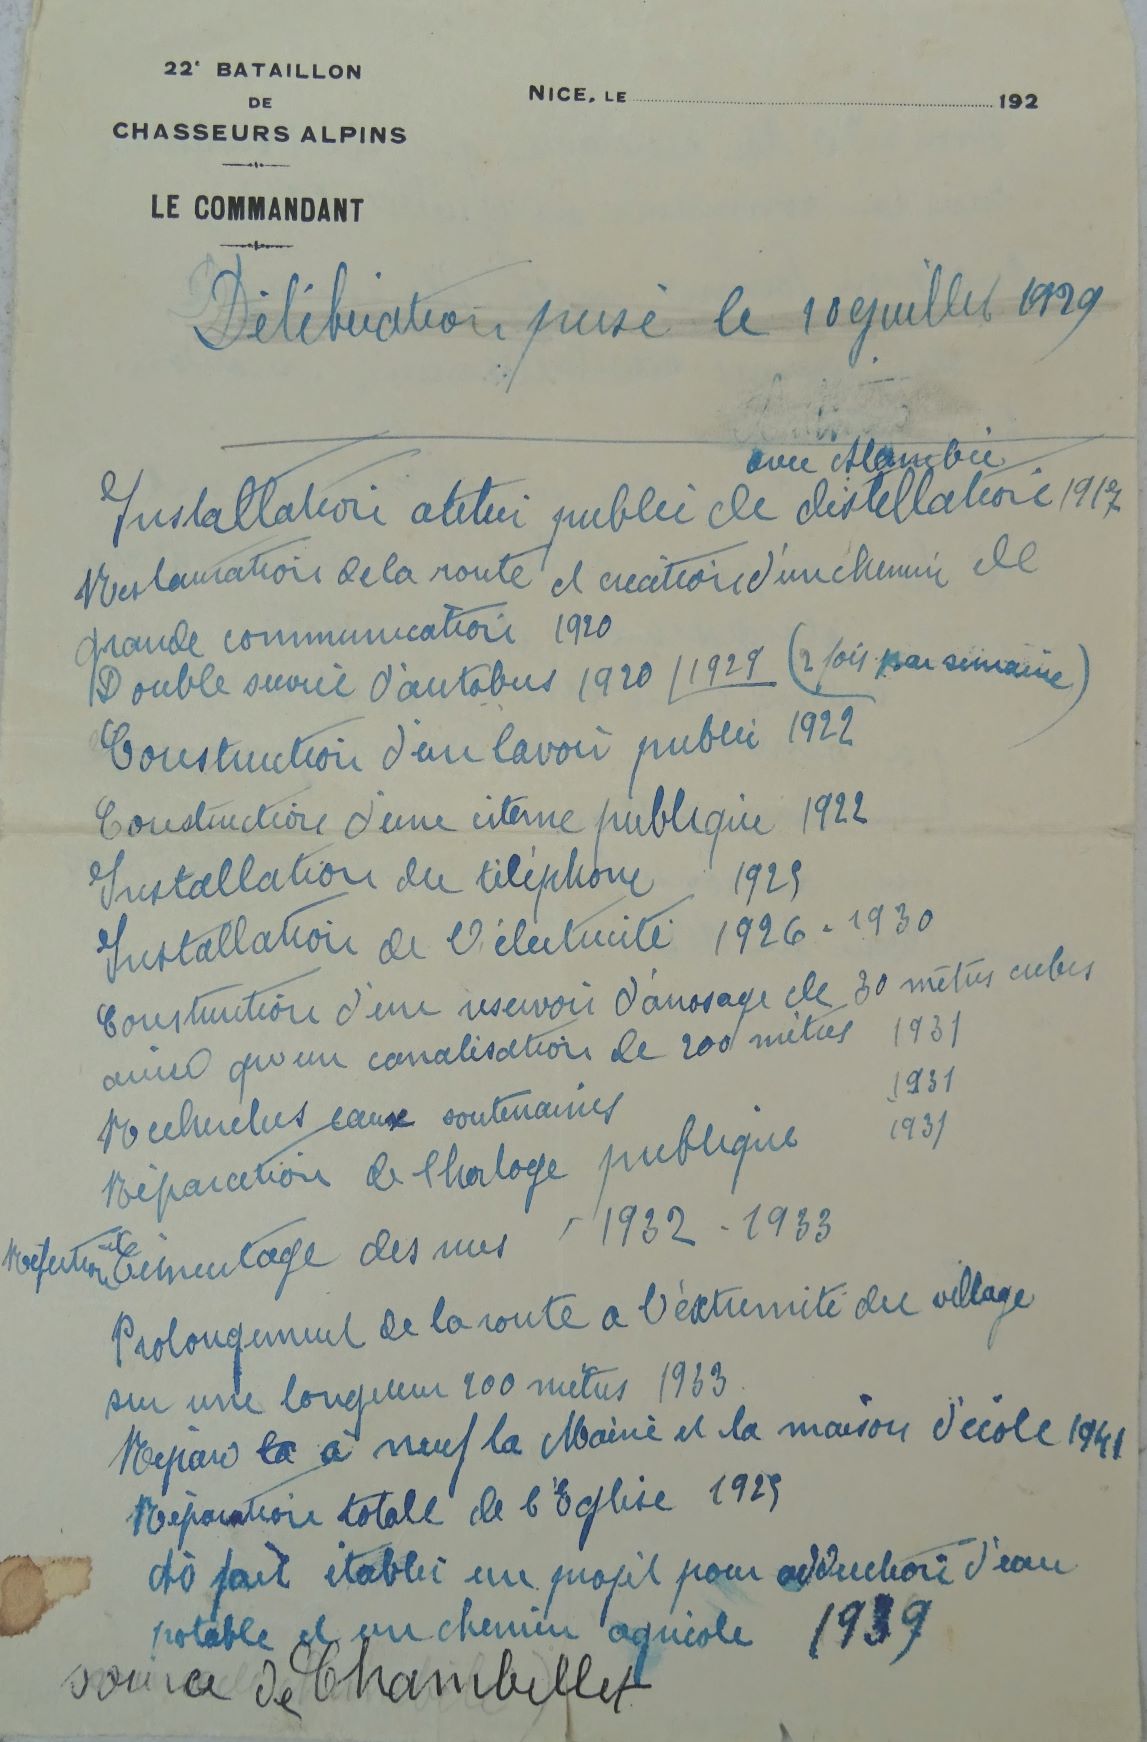 22e BATAILLON
DE
CHASSEURS ALPINS
LE COMMANDANT
NICE, LE 192
Délibération prise le 10 juillet 1929
avec Alambic
Installation atelier public de distellation 1917
Restauration de la route et création d'un chemin de
grande communication 1920
Double service d'autobus 1920 / 1929 (2 fois par semaine)
Construction d'un lavoir public 1922
Construction d'une citerne publique 1922
Installation du téléphone 1925
Installation de l'électricité 1926 - 1930
Construction d'un reservoir d'arrosage de 30 mètres cubes
ainsi qu'un canalisation de 200 mètres 1931
Recherches eaux souterraines 1931
Réparation de l'horloge publique 1931
Refection et Cimentage des rues - 1932 - 1933
Prolongement de la route a l'éxtremité du village
sur une longueur 200 mètres 1933
Réparé à neuf la Mairie et la maison d'école 1941
Réparation totale de l'Eglise 1925
A fait établir un projet pour adduction d'eau
potable et un chemin agricole 1939
source de Chambellet